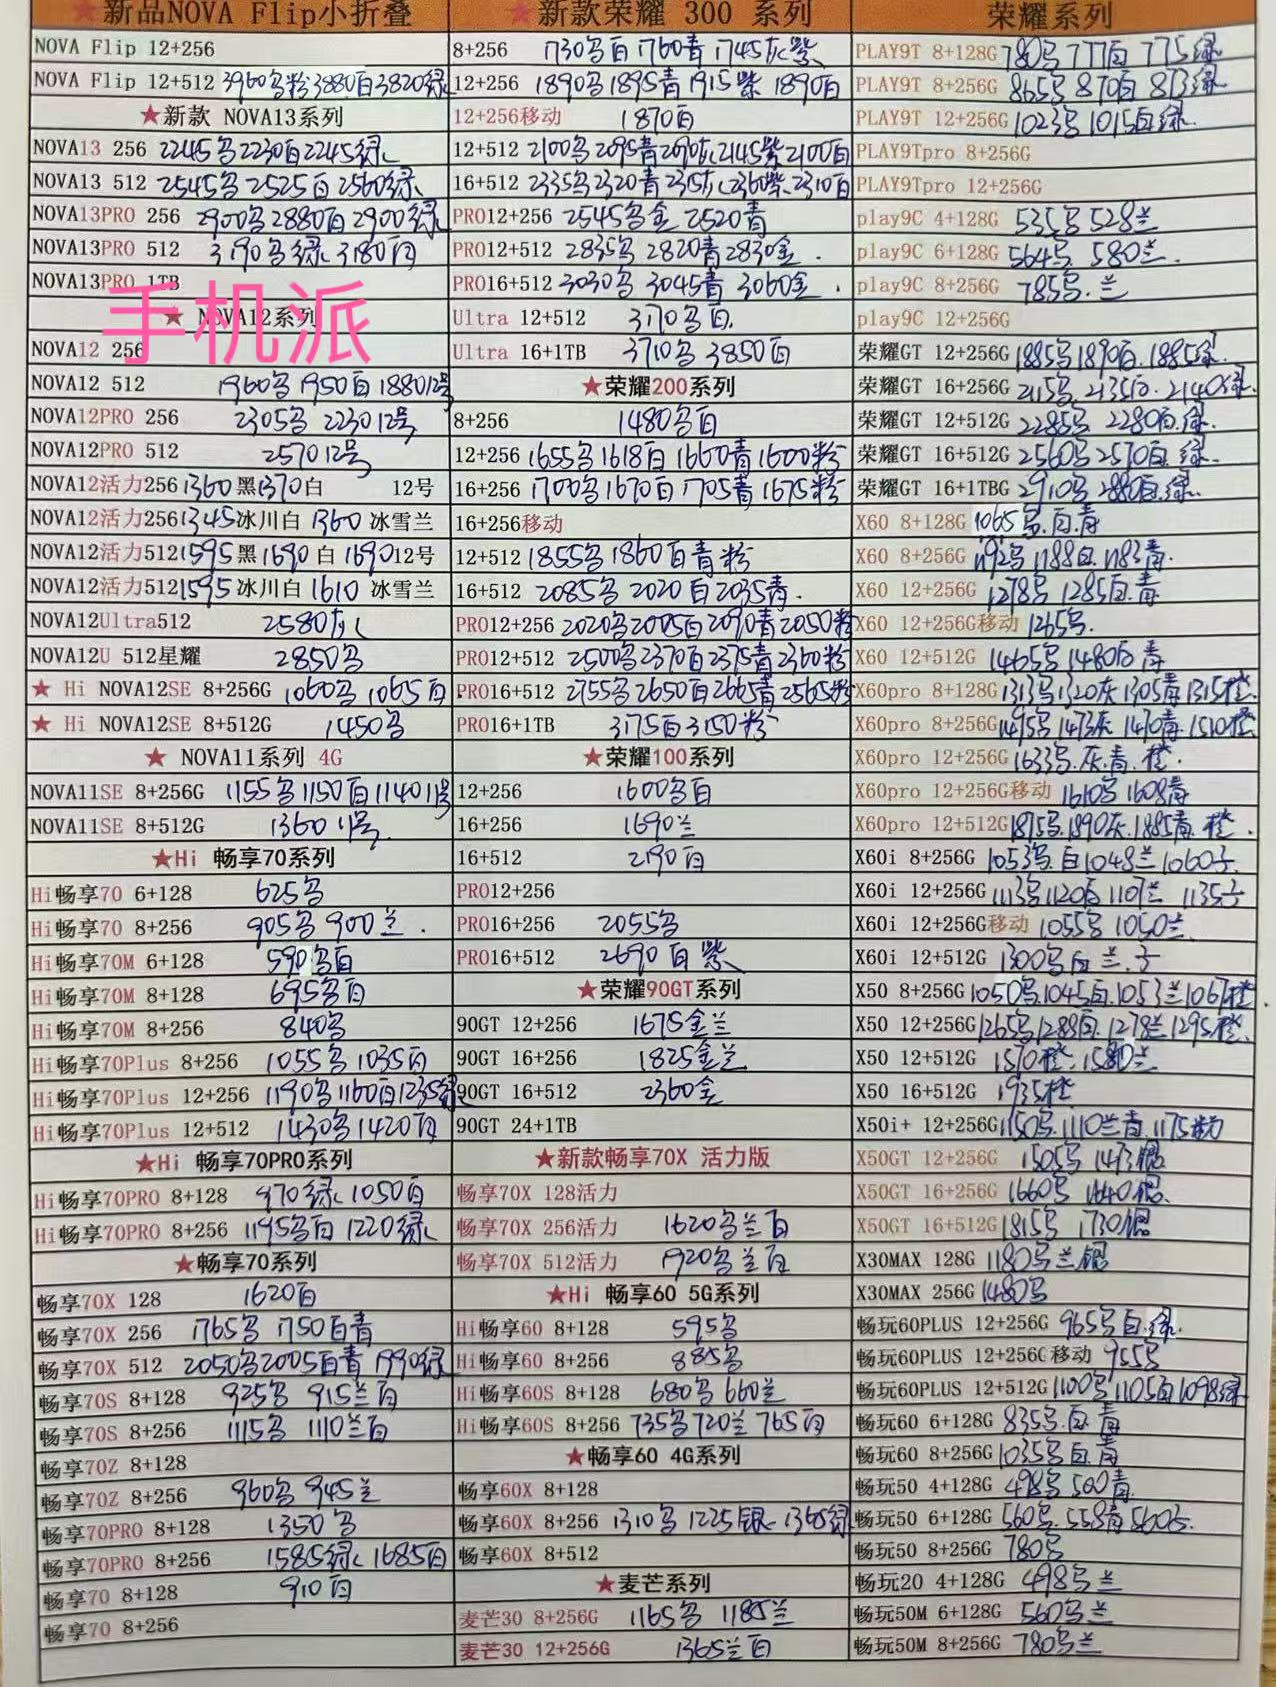 ★新品NOVA Flip小折叠
NOVA Flip 12+256
NOVA Flip 12+512 3960黑粉3880白3820绿
★新款 NOVA13系列
NOVA13 256 2245黑2230白2245绿
NOVA13 512 2545黑2525白2560绿
NOVA13PRO 256 2900黑2880白2900绿
NOVA13PRO 512 3190黑绿3180白
NOVA13PRO 1TB
手机派
★ NOVA12系列
NOVA12 256
NOVA12 512 1960黑1950白188012号
NOVA12PRO 256 2305黑223012号
NOVA12PRO 512 257012号
NOVA12活力256 1360黑1370白 12号
NOVA12活力256 1345冰川白 1360 冰雪兰
NOVA12活力512 1595黑1690 白 169012号
NOVA12活力512 1595 冰川白 1610 冰雪兰
NOVA12Ultra512 2580灰
NOVA12U 512星耀 2850黑
★ Hi NOVA12SE 8+256G 1060黑1065白
★ Hi NOVA12SE 8+512G 1450黑
★ NOVA11系列 4G
NOVA11SE 8+256G 1155黑1150白114011号
NOVA11SE 8+512G 136011号
★Hi 畅享70系列
Hi畅享70 6+128 625黑
Hi畅享70 8+256 905黑 900兰.
Hi畅享70M 6+128 590黑白
Hi畅享70M 8+128 695黑白
Hi畅享70M 8+256 840黑
Hi畅享70Plus 8+256 1055黑1035白
Hi畅享70Plus 12+256 1190黑1160白1235绿
Hi畅享70Plus 12+512 1430黑1420白
★Hi 畅享70PRO系列
Hi畅享70PRO 8+128 970绿1050白
Hi畅享70PRO 8+256 1195黑白1220绿
★畅享70系列
畅享70X 128 1620白
畅享70X 256 1765黑1750白青
畅享70X 512 2050黑2005白青1990绿
畅享70S 8+128 925黑 915兰白
畅享70S 8+256 1115黑 1110兰白
畅享70Z 8+128
畅享70Z 8+256 960黑945兰
畅享70PRO 8+128 1350黑
畅享70PRO 8+256 1585绿1685白
畅享70 8+128 910白
畅享70 8+256
★新款荣耀 300 系列
8+256 1730黑白1760青1745灰紫
12+256 1890黑1895青1915紫1890白
12+256移动 1870白
12+512 2100黑2095青2090灰2145紫2100白
16+512 2335黑2320青2315灰2360紫2310白
PRO12+256 2545黑金 2520青
PRO12+512 2835黑2820青2830金.
PRO16+512 3030黑3045青3060金.
Ultra 12+512 3170黑白
Ultra 16+1TB 3710黑3850白
★荣耀200系列
8+256 1480黑白
12+256 1655黑1618白1660青1600粉
16+256 1700黑1670白1705青1675粉
16+256移动
12+512 1855黑1860白青粉
16+512 2085黑2020白2035青.
PRO12+256 2020黑2005白2090青2050粉
PRO12+512 2500黑2370白2375青2360粉
PRO16+512 2755黑2650白2665青2565粉
PRO16+1TB 3175白3150粉
★荣耀100系列
12+256 1600黑白
16+256 1690兰
16+512 2190白
PRO12+256
PRO16+256 2055黑
PRO16+512 2690白紫
★荣耀90GT系列
90GT 12+256 1675金兰
90GT 16+256 1825金兰
90GT 16+512 2360金
90GT 24+1TB
★新款畅享70X 活力版
畅享70X 128活力
畅享70X 256活力 1620黑兰白
畅享70X 512活力 1920黑兰白
★Hi 畅享60 5G系列
Hi畅享60 8+128 595黑
Hi畅享60 8+256 885黑
Hi畅享60S 8+128 680黑660兰
Hi畅享60S 8+256 735黑720兰765白
★畅享60 4G系列
畅享60X 8+128
畅享60X 8+256 1310黑1225银1365绿
畅享60X 8+512
★麦芒系列
麦芒30 8+256G 1165黑1185兰
麦芒30 12+256G 1365兰白
荣耀系列
PLAY9T 8+128G 780黑777白775绿
PLAY9T 8+256G 865黑870白873绿
PLAY9T 12+256G 1023黑1015白绿.
PLAY9Tpro 8+256G
PLAY9Tpro 12+256G
play9C 4+128G 535黑528兰
play9C 6+128G 564黑.580兰.
play9C 8+256G 785黑.兰
play9C 12+256G
荣耀GT 12+256G 1885黑1890白.1885绿.
荣耀GT 16+256G 2115黑.2135白.2140绿.
荣耀GT 12+512G 2285黑 2280白.绿.
荣耀GT 16+512G 2560黑2570白.绿.
荣耀GT 16+1TBG 2910黑2880白.绿.
X60 8+128G 1065黑.白.青
X60 8+256G 1192黑1188白.1183青.
X60 12+256G 1278黑1285白.青
X60 12+256G移动 1265黑.
X60 12+512G 1465黑1480白青
X60pro 8+128G 1313黑1320灰1305青1315橙.
X60pro 8+256G 1495黑1473灰1470青.1510橙
X60pro 12+256G 1633黑.灰.青.橙.
X60pro 12+256G移动 1610黑1608青
X60pro 12+512G 1875黑.1890灰.1885青.橙.
X60i 8+256G 1053黑.白1048兰1060子.
X60i 12+256G 1113黑1120白1107兰 1135子
X60i 12+256G移动 1055黑1050兰.
X60i 12+512G 1300黑白兰.子
X50 8+256G 1050黑.1045白.1053兰1067橙.
X50 12+256G 1265黑1288白.1278兰1295橙.
X50 12+512G 1570橙.1580兰
X50 16+512G 1935橙
X50i+ 12+256G 1150黑.1110兰青.1175粉
X50GT 12+256G 1505黑1473银
X50GT 16+256G 1660黑 1640银.
X50GT 16+512G 1815黑 1730银
X30MAX 128G 1180黑兰银
X30MAX 256G 1480黑
畅玩60PLUS 12+256G 965黑白.绿.
畅玩60PLUS 12+256G移动 955黑
畅玩60PLUS 12+512G 1100黑1105白1098绿
畅玩60 6+128G 835黑.白.青
畅玩60 8+256G 1035黑白.青
畅玩50 4+128G 498黑500青.
畅玩50 6+128G 560黑.558青560子.
畅玩50 8+256G 780黑
畅玩20 4+128G 498黑兰
畅玩50M 6+128G 560黑兰
畅玩50M 8+256G 780黑兰